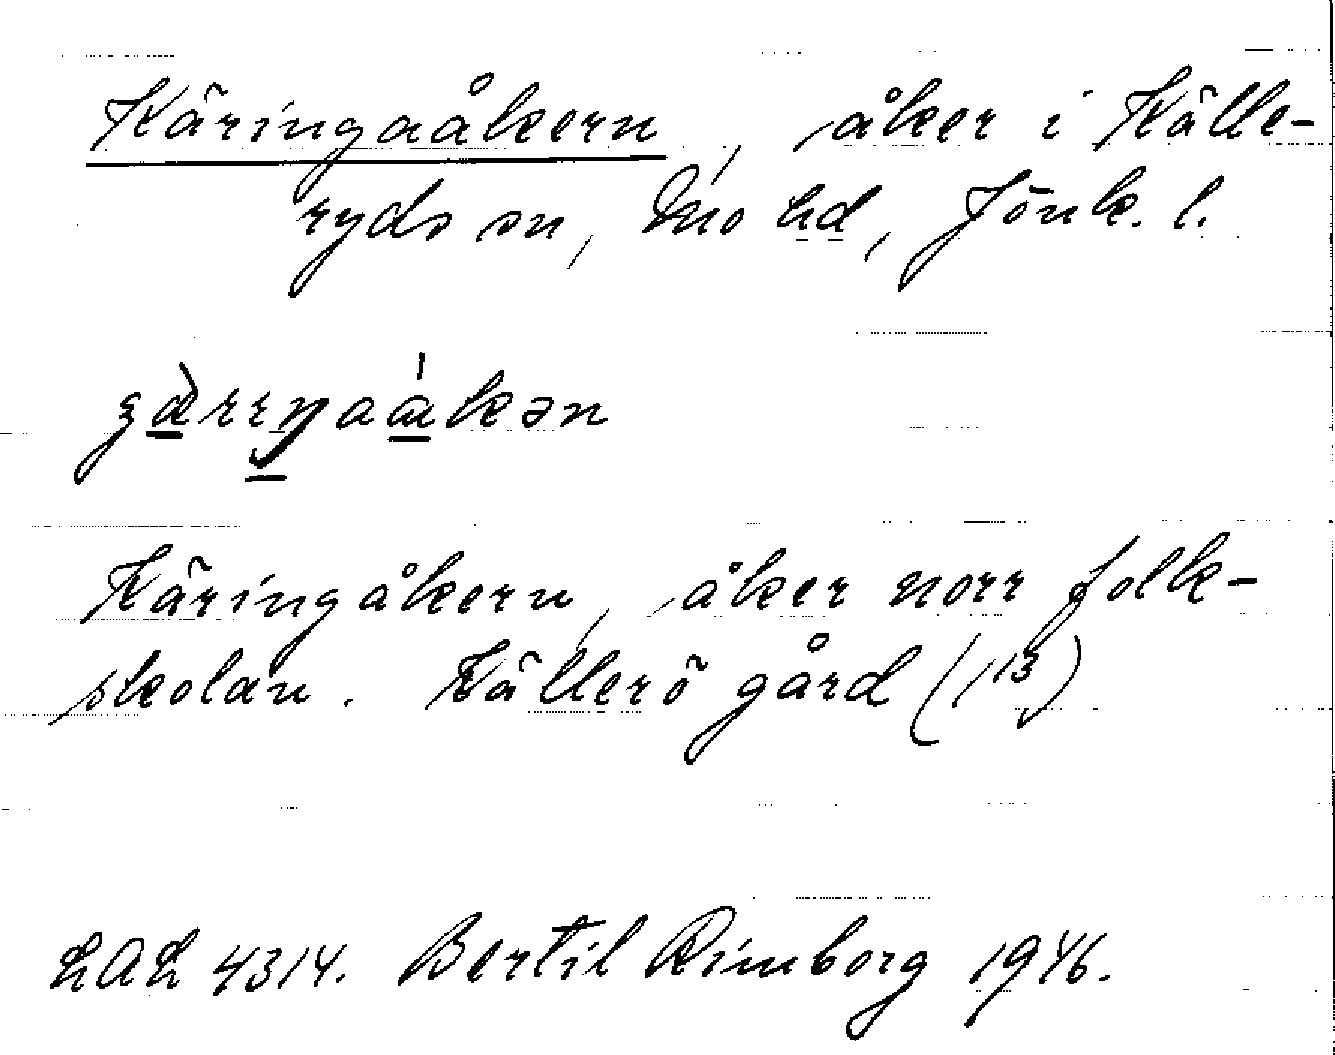 Käringaåkern, åker i Källe-
ryds sn, Mo hd, Jönk. l.
Käringåkern, åker norr folk-
skolan. Källerö gård (1/13)
LAL 4314. Bertil Rimborg 1946.